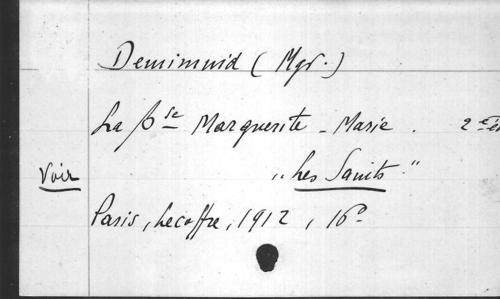 Demimuid (Mgr.)
La Bse Marguerite-Marie. 2e Ed
Voir „Les Saints."
Paris, Lecoffre, 1912, 16º